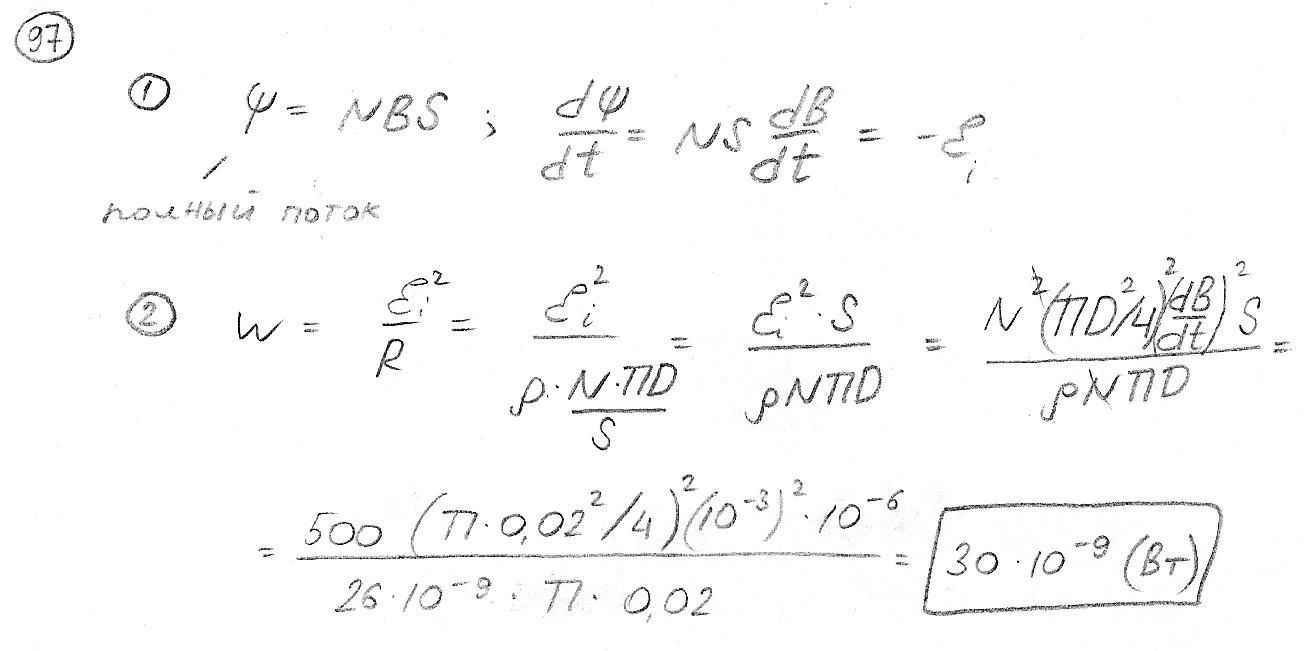 97
① Ψ = NBS ; dΨ/dt = NS dB/dt = -ℰᵢ
полный поток
② W = ℰᵢ²/R = ℰᵢ²/(ρ·N·πD/S) = ℰᵢ²·S/(ρNπD) = N²(πD²/4)²(dB/dt)²S/(ρNπD) =
= 500 (π·0,02²/4)²(10⁻³)²·10⁻⁶/(26·10⁻⁹·π·0,02) = 30·10⁻⁹ (Вт)